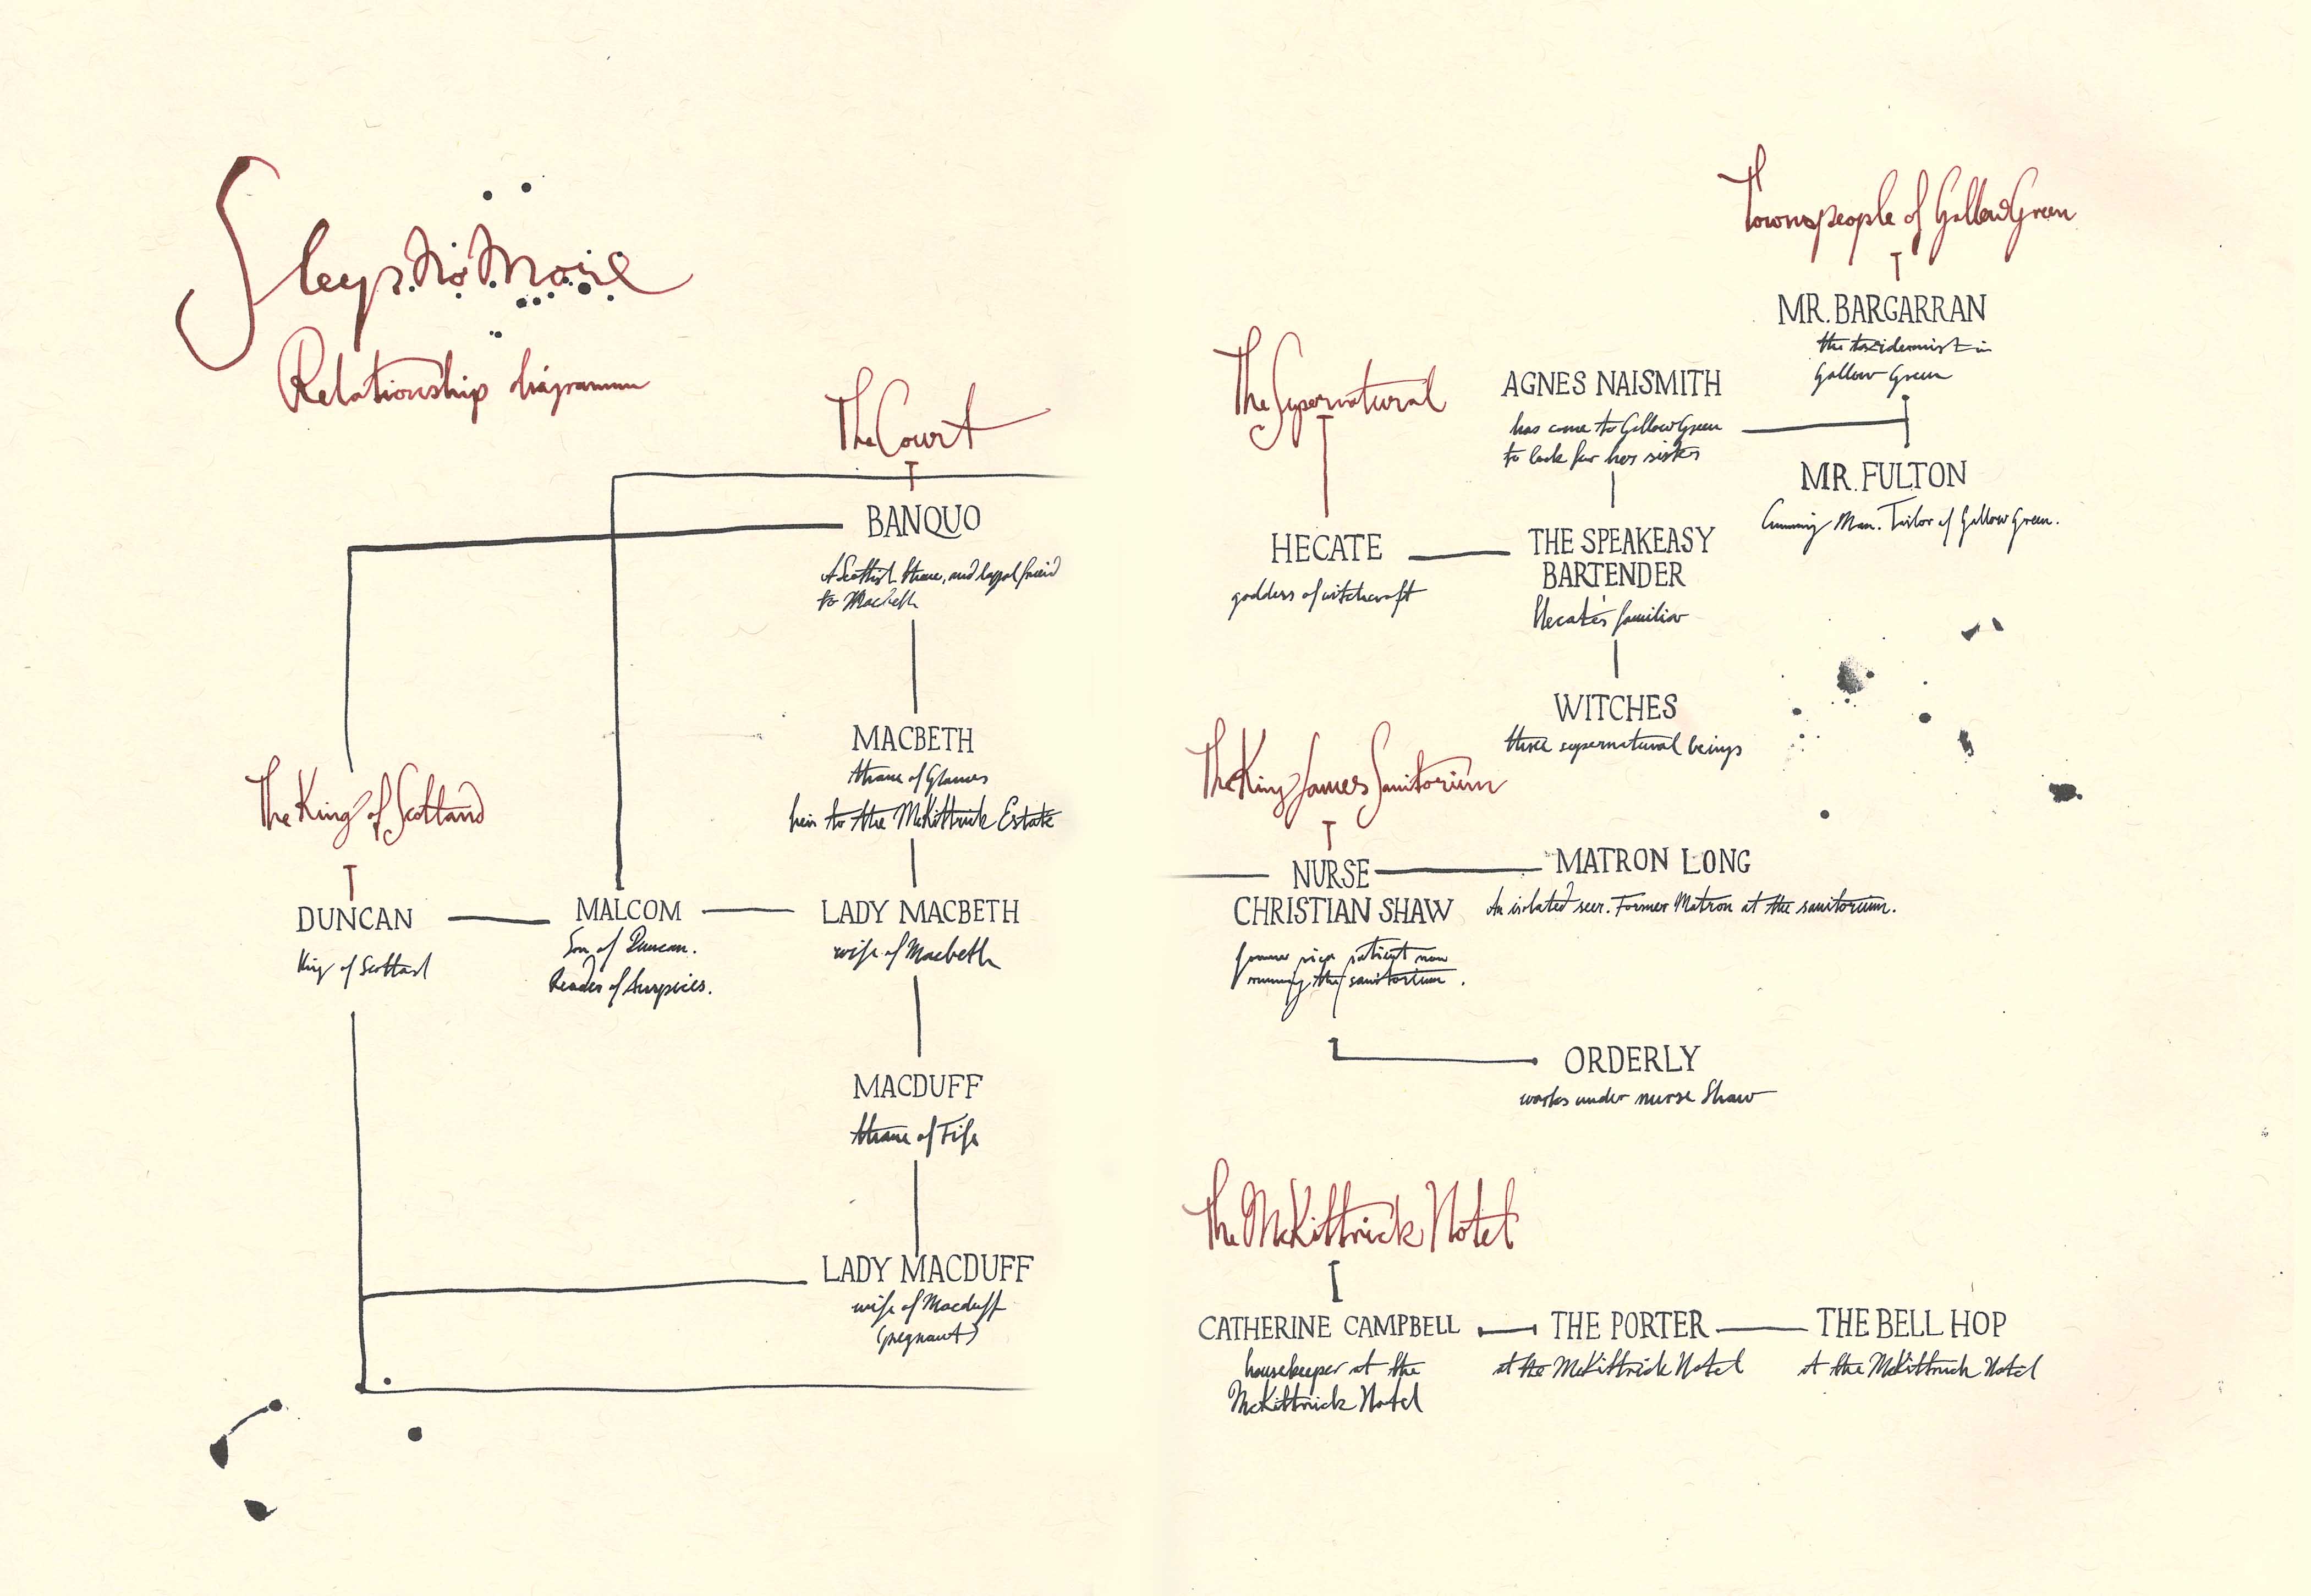 Sleep No More
Relationship diagramm
The Court
BANQUO
A Scottish thane, and loyal freind
to Macbeth
MACBETH
thane of Glames
heir to the McKittrick Estate
The King of Scotland
DUNCAN
King of Scotland
MALCOM
Son of Duncan.
Reader of Auspices.
LADY MACBETH
wife of Macbeth
MACDUFF
thane of Fife
LADY MACDUFF
wife of Macduff
(pregnant)
Townspeople of Gallow Green
MR. BARGARRAN
the taxidermist in
Gallow Green
The Supernatural
AGNES NAISMITH
has come to Gallow Green
to look for her sister
MR. FULTON
Cunning Man. Tailor of Gallow Green.
HECATE
goddess of witchcraft
THE SPEAKEASY
BARTENDER
Hecate's familiar
WITCHES
three supernatural beings
The King James Sanitorium
NURSE
CHRISTIAN SHAW
former pica patient now
running the sanitorium.
MATRON LONG
An isolated seer. Former Matron at the sanitorium.
ORDERLY
works under nurse Shaw
The McKittrick Hotel
CATHERINE CAMPBELL
housekeeper at the
McKittrick Hotel
THE PORTER
at the McKittrick Hotel
THE BELL HOP
at the McKittrick Hotel